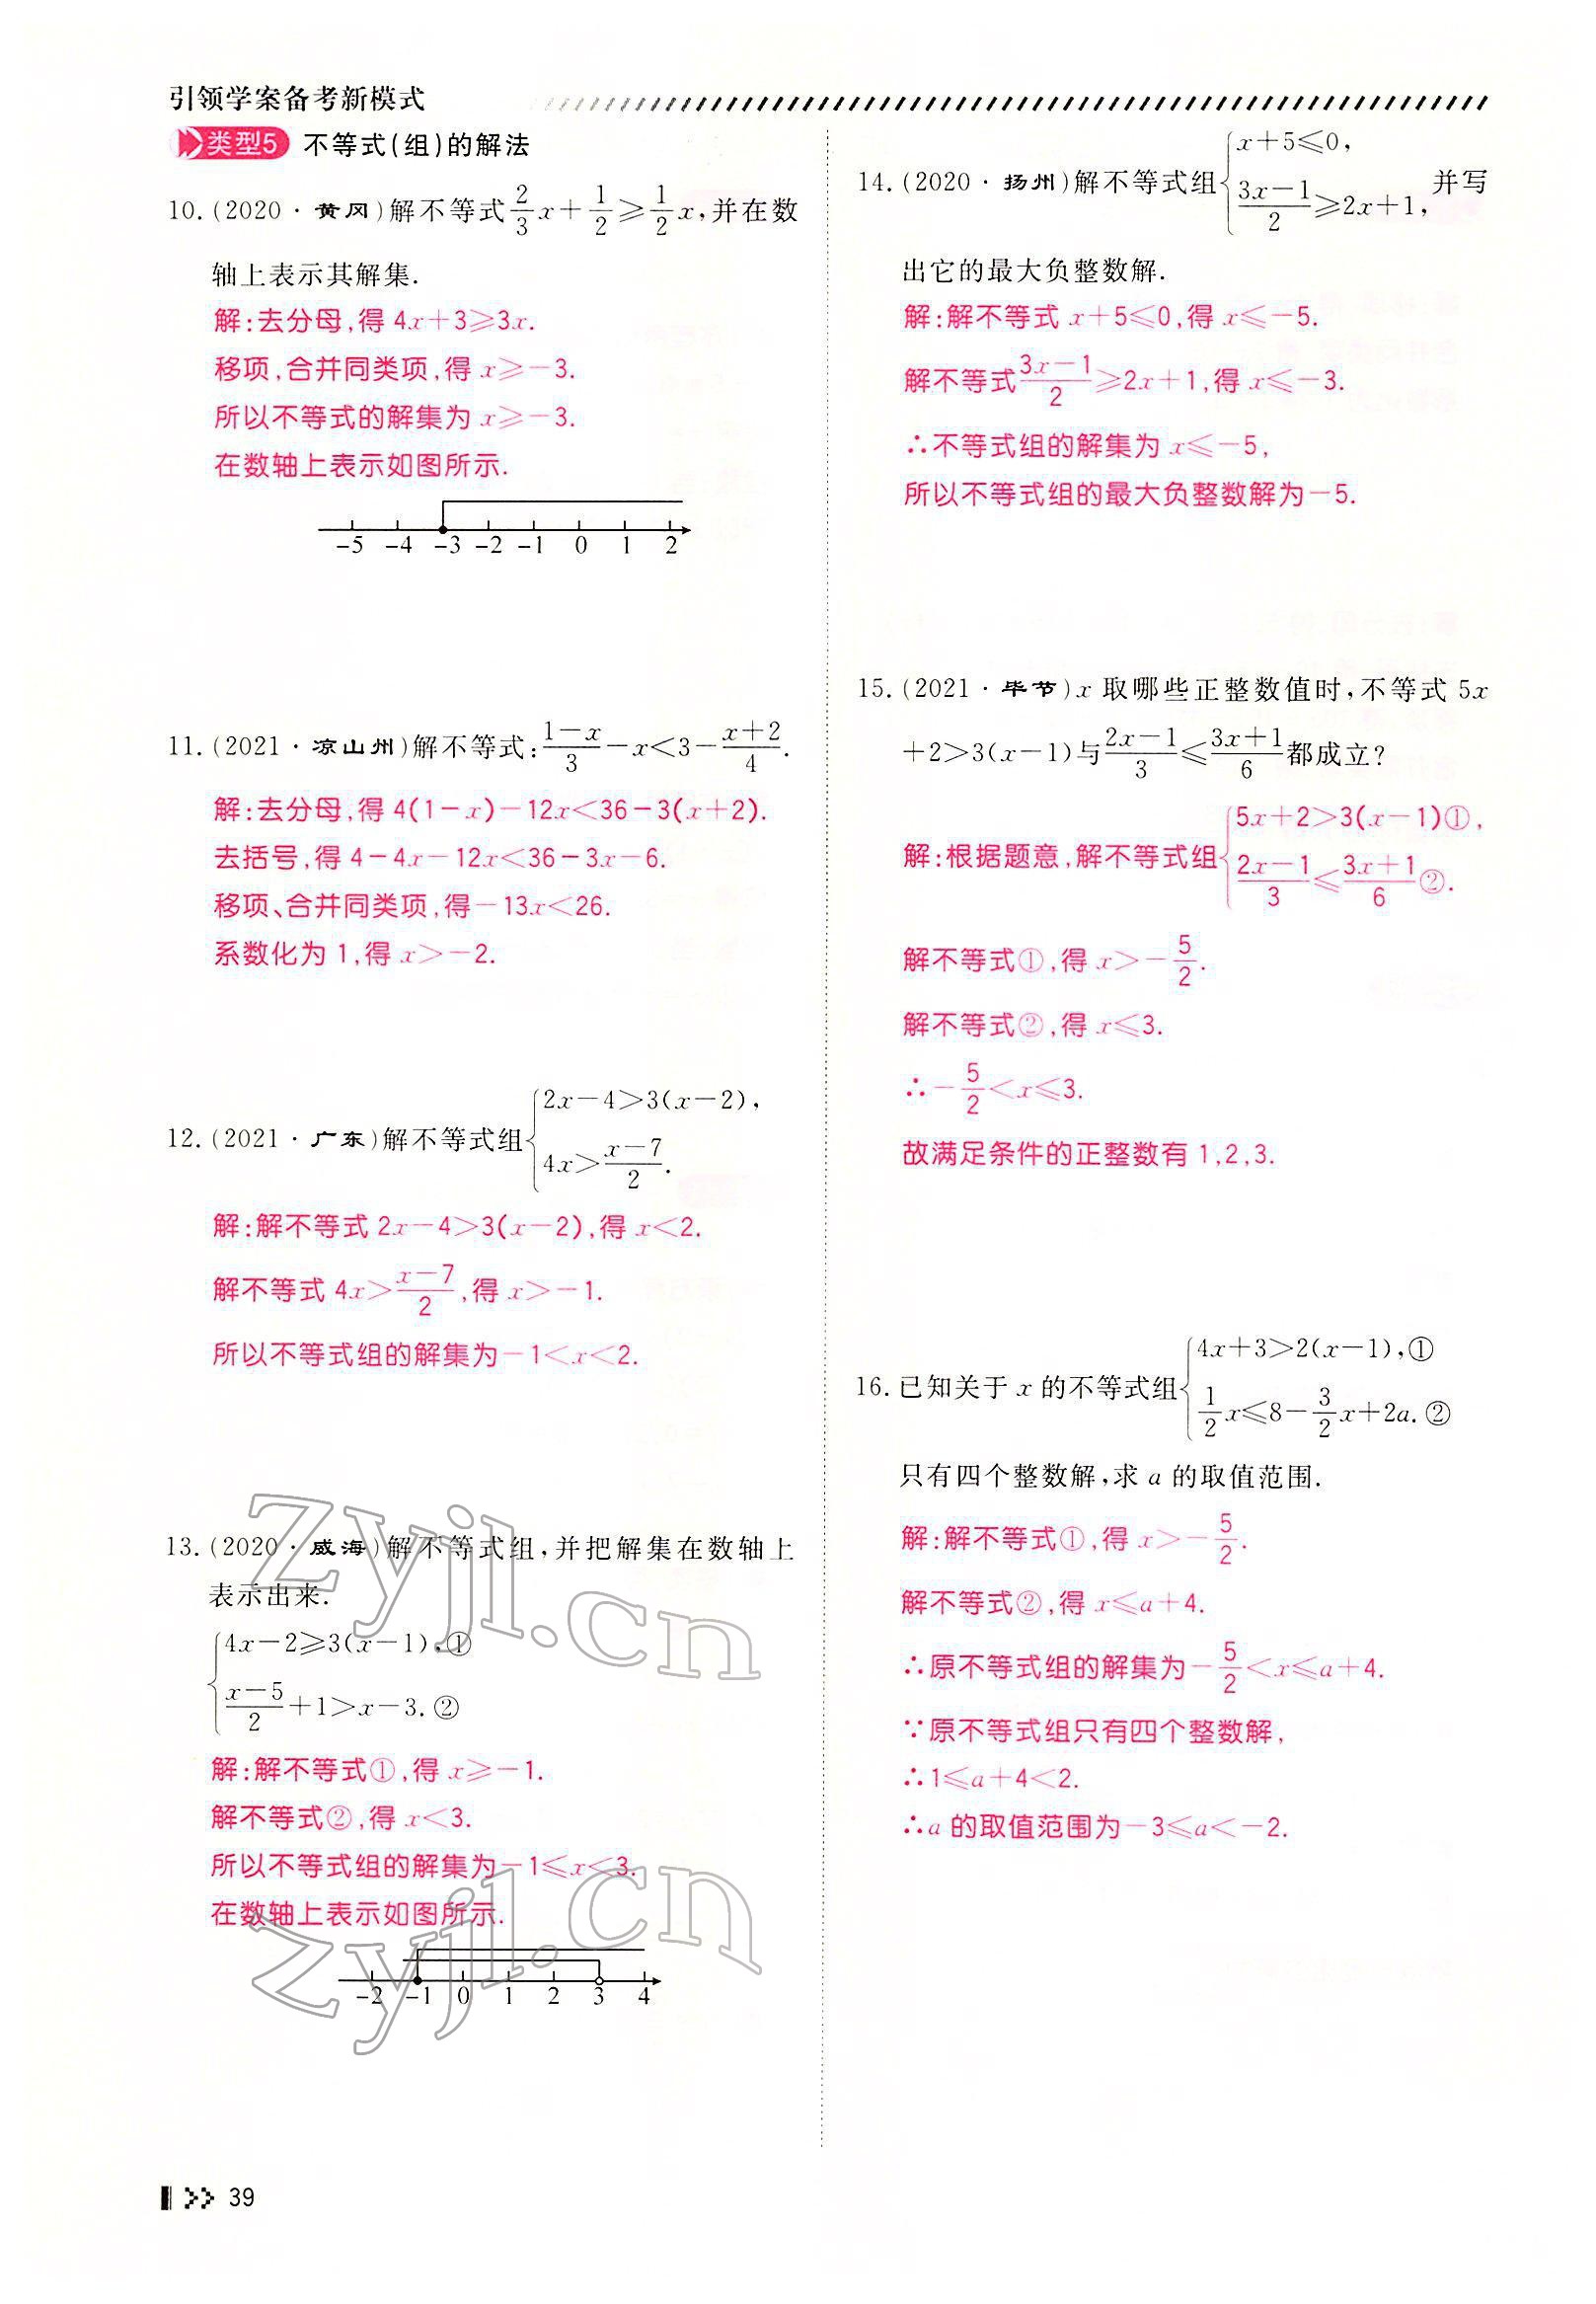 引领学案备考新模式
类型5 不等式(组)的解法
10. (2020·黄冈)解不等式 2/3 x + 1/2 ≥ 1/2 x,并在数
轴上表示其解集.
解:去分母,得 4x+3≥3x.
移项,合并同类项,得 x≥-3.
所以不等式的解集为 x≥-3.
在数轴上表示如图所示.
-5 -4 -3 -2 -1 0 1 2
11. (2021·凉山州)解不等式: (1-x)/3 - x < 3 - (x+2)/4.
解:去分母,得 4(1-x)-12x<36-3(x+2).
去括号,得 4-4x-12x<36-3x-6.
移项、合并同类项,得-13x<26.
系数化为 1,得 x>-2.
12. (2021·广东)解不等式组 { 2x-4>3(x-2),
4x>(x-7)/2.
解:解不等式 2x-4>3(x-2),得 x<2.
解不等式 4x>(x-7)/2,得 x>-1.
所以不等式组的解集为-1<x<2.
13. (2020·威海)解不等式组,并把解集在数轴上
表示出来.
{ 4x-2≥3(x-1),①
(x-5)/2+1>x-3.②
解:解不等式①,得 x≥-1.
解不等式②,得 x<3.
所以不等式组的解集为-1≤x<3.
在数轴上表示如图所示.
-2 -1 0 1 2 3 4
14. (2020·扬州)解不等式组 { x+5≤0,
(3x-1)/2≥2x+1, 并写
出它的最大负整数解.
解:解不等式 x+5≤0,得 x≤-5.
解不等式(3x-1)/2≥2x+1,得 x≤-3.
∴不等式组的解集为 x≤-5,
所以不等式组的最大负整数解为-5.
15. (2021·毕节)x 取哪些正整数值时,不等式 5x
+2>3(x-1)与(2x-1)/3≤(3x+1)/6都成立?
解:根据题意,解不等式组 { 5x+2>3(x-1)①,
(2x-1)/3≤(3x+1)/6②.
解不等式①,得 x>-5/2.
解不等式②,得 x≤3.
∴-5/2<x≤3.
故满足条件的正整数有 1,2,3.
16. 已知关于 x 的不等式组 { 4x+3>2(x-1),①
1/2 x≤8-3/2 x+2a.②
只有四个整数解,求 a 的取值范围.
解:解不等式①,得 x>-5/2.
解不等式②,得 x≤a+4.
∴原不等式组的解集为-5/2<x≤a+4.
∵原不等式组只有四个整数解,
∴1≤a+4<2.
∴a 的取值范围为-3≤a<-2.
zyjl.cn
zyjl.cn
39